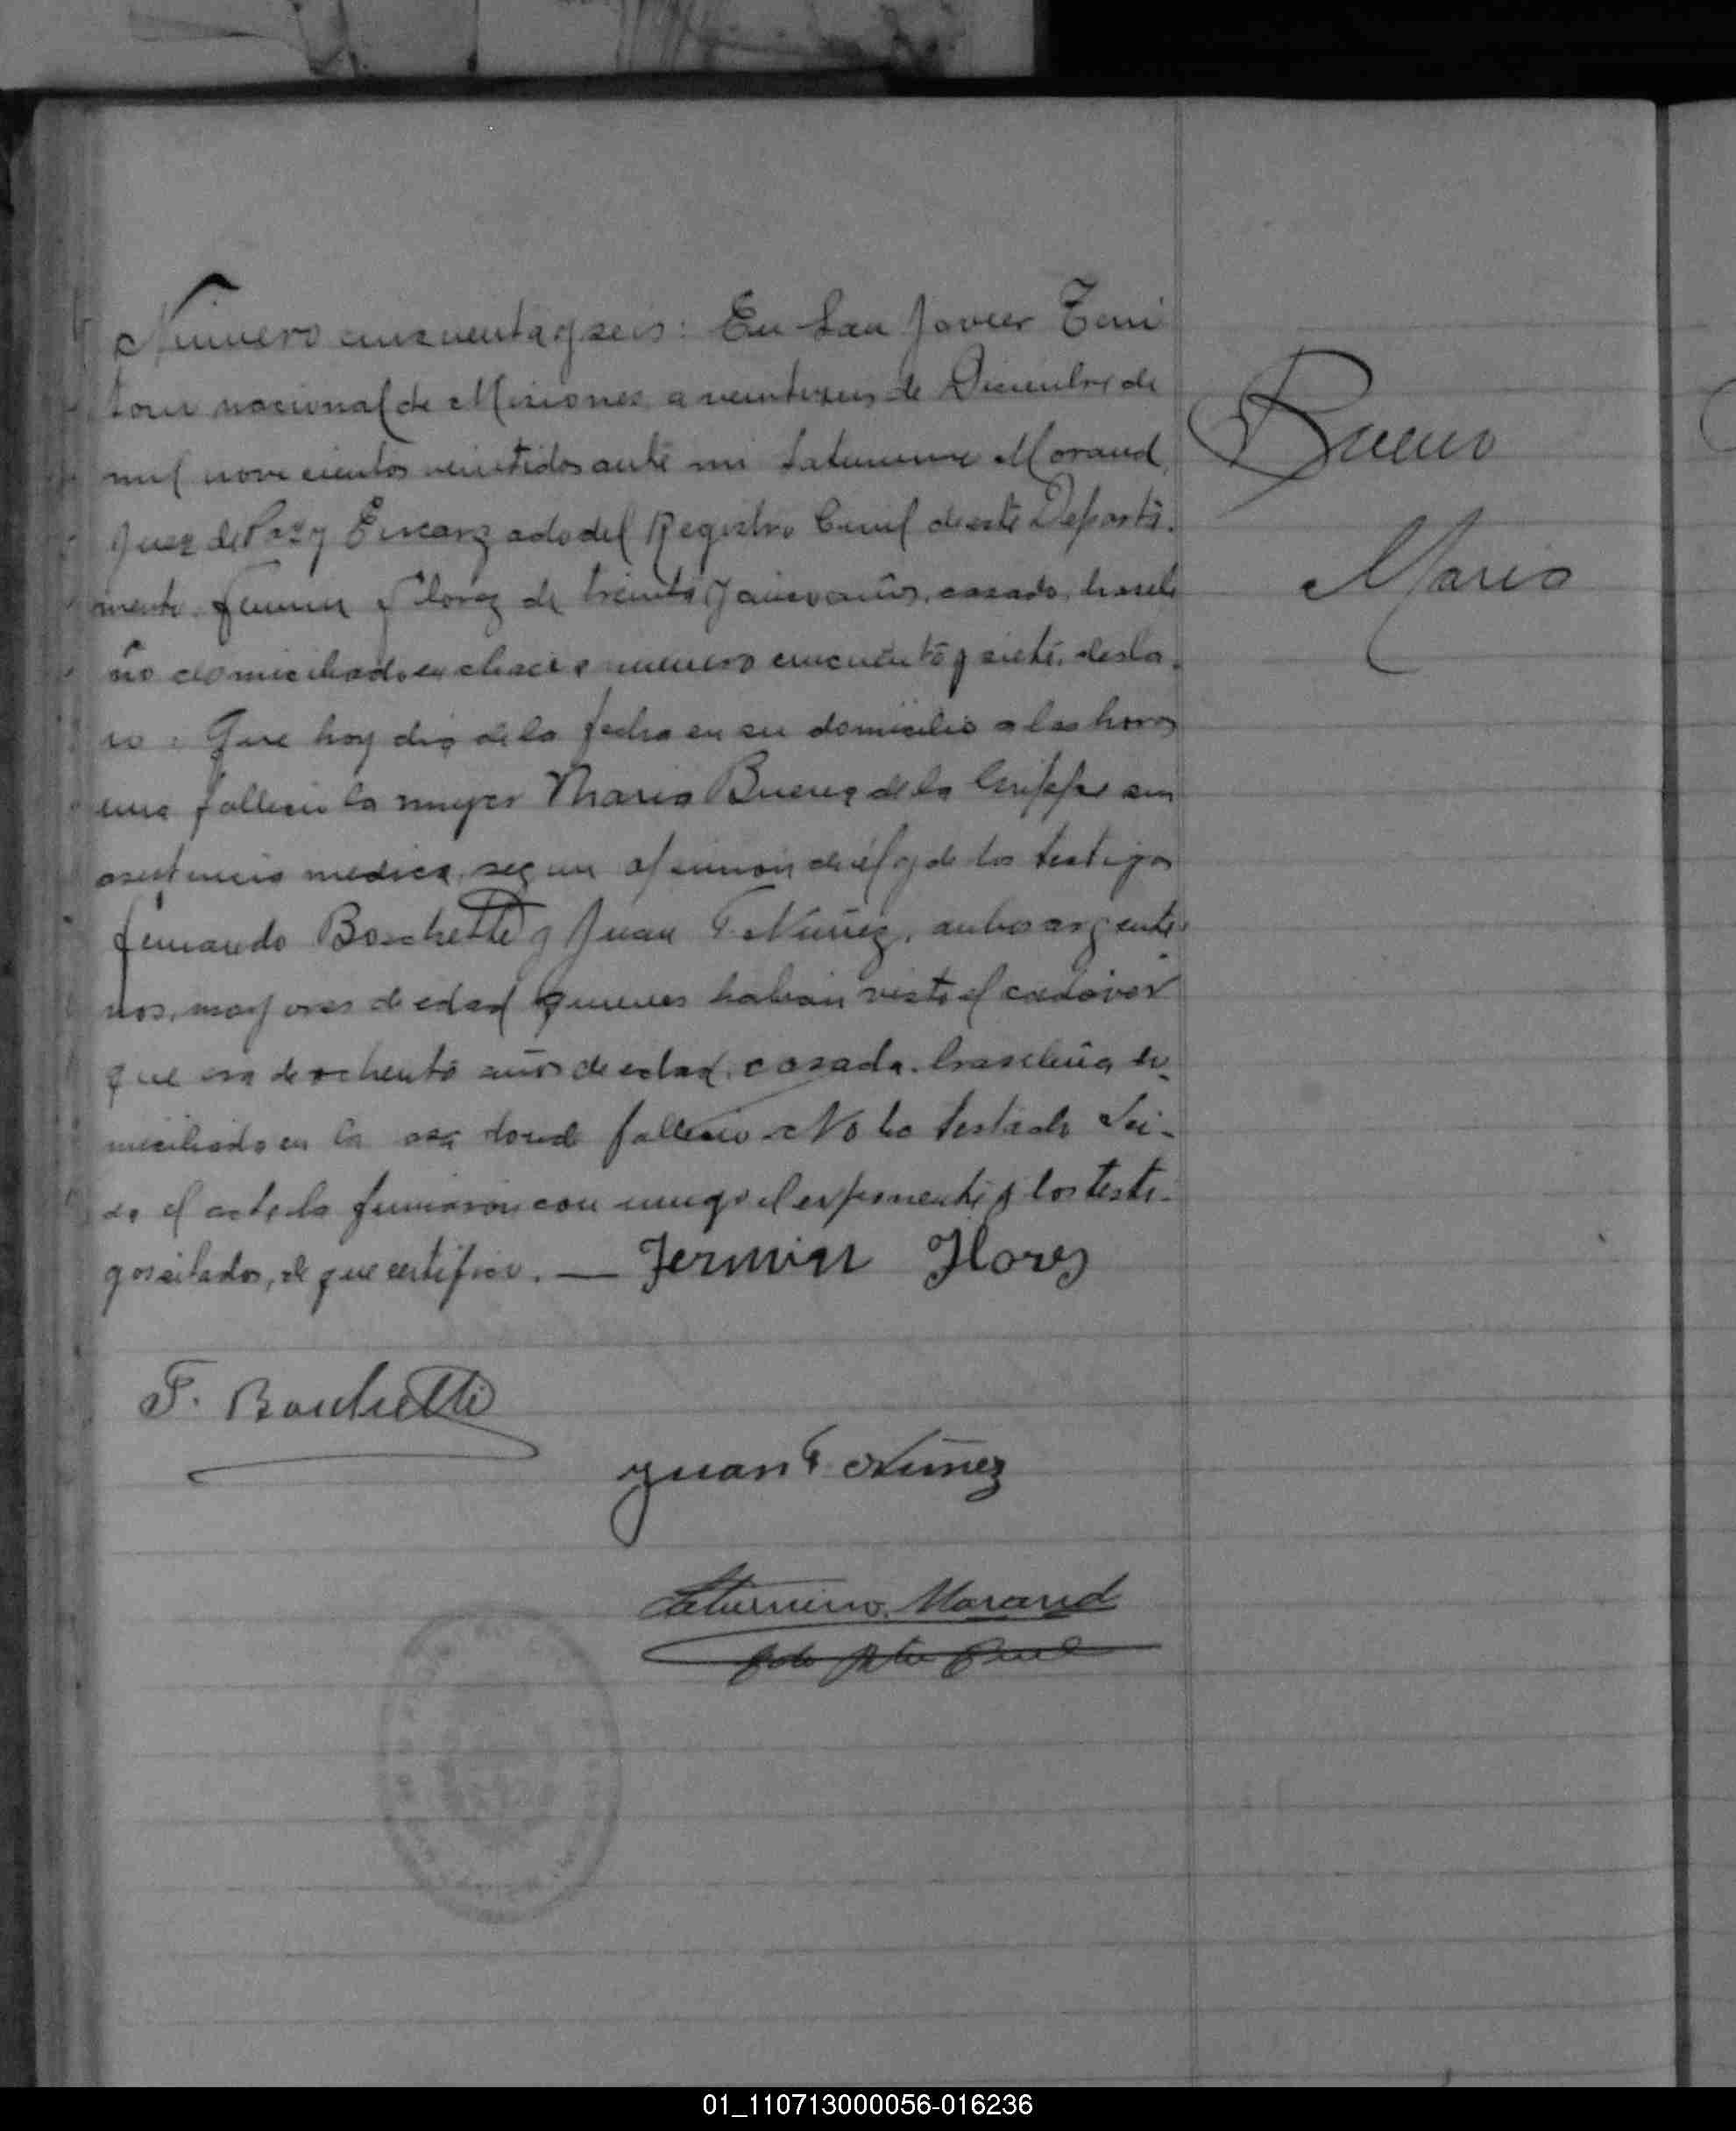 Número cincuenta y seis: En San Javier Terri
torio nacional de Misiones a veintiseis de Diciembre de
mil novecientos veintidos ante mi Saturnino Morand,
Juez de Paz y Encargado del Registro Civil de este Departa-
mento. Fermin Florez de treinta y años, casado, brasile
ño domiciliado en chacra numero cincuenta y siete, decla-
ro: Que hoy dia de la fecha en su domicilio a las horas
una fallecio la mujer Maria Bueno de la Grippe sin
asistencia medica, segun opinion de él y de los testigos
Fernando Boschetti y Juan F. Núñez, ambos argenti-
nos, mayores de edad quienes habian visto el cadáver
que era de ochenta años de edad, casada. brasileña do-
miciliada en la casa donde fallecio. No ha testado Lei-
da el acta la firmaron con migo el exponente y los testi-
gos citados, de que certifico. — Fermin Flores
Bueno
Maria
F. Boschetti
Juan F Núñez
Saturnino Morand
01_110713000056-016236